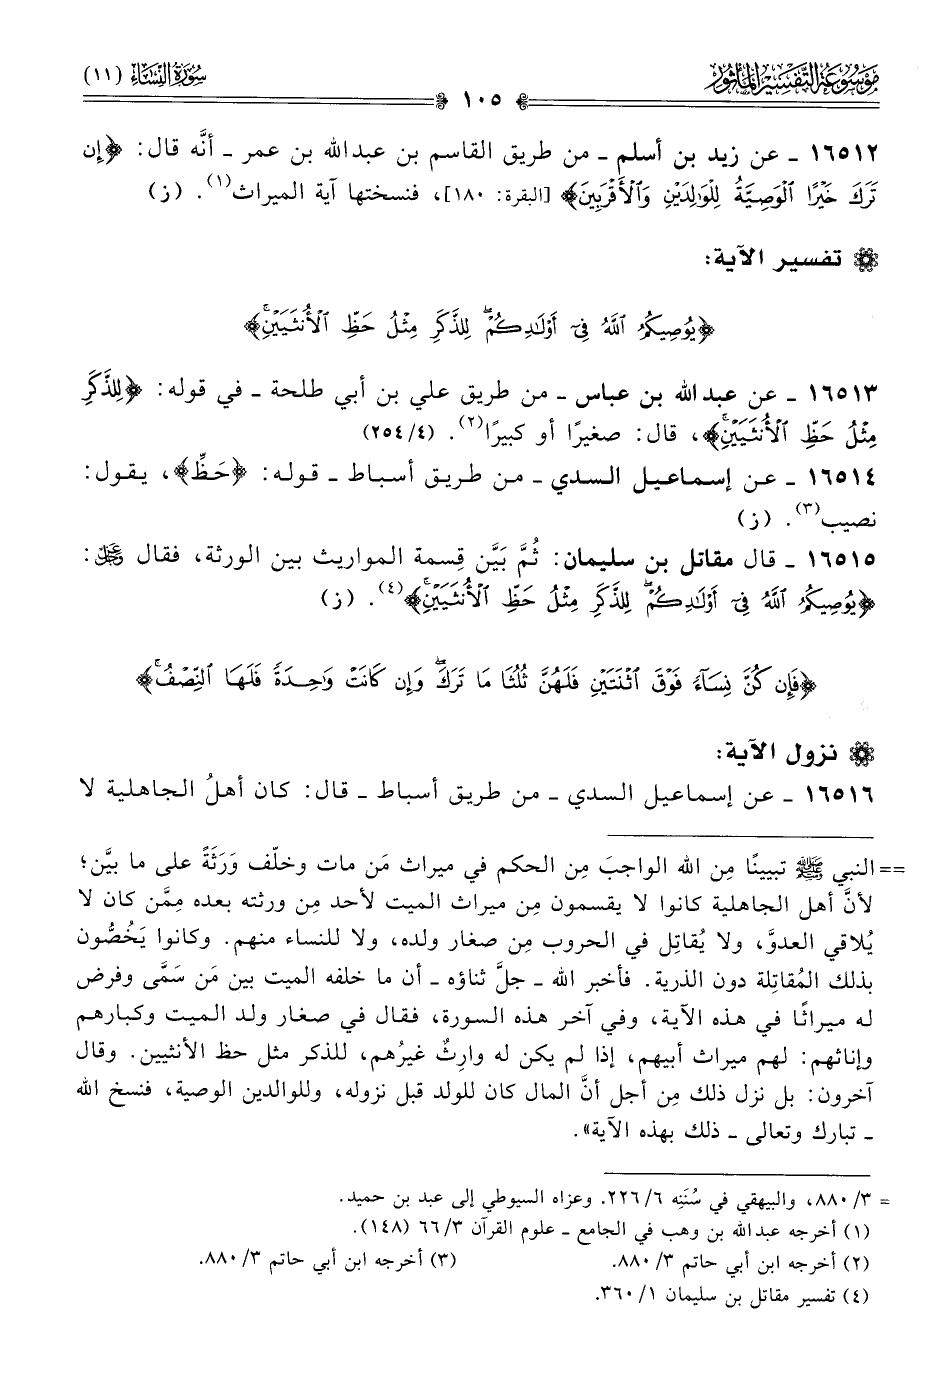 مَوْسُوعَةُ التَّفْسِيرِ المَأْثُورِ
سُورَةُ النِّسَاءِ (١١)
١٠٥
١٦٥١٢ ـ عن زيد بن أسلم ـ من طريق القاسم بن عبدالله بن عمر ـ أنَّه قال: ﴿إِن
تَرَكَ خَيْرًا ٱلْوَصِيَّةُ لِلْوَٰلِدَيْنِ وَٱلْأَقْرَبِينَ﴾ [البقرة: ١٨٠]، فنسختها آية الميراث(١). (ز)
تفسير الآية:
﴿يُوصِيكُمُ ٱللَّهُ فِىٓ أَوْلَٰدِكُمْ ۖ لِلذَّكَرِ مِثْلُ حَظِّ ٱلْأُنثَيَيْنِ ۚ﴾
١٦٥١٣ ـ عن عبدالله بن عباس ـ من طريق علي بن أبي طلحة ـ في قوله: ﴿لِلذَّكَرِ
مِثْلُ حَظِّ ٱلْأُنثَيَيْنِ ۚ﴾، قال: صغيرًا أو كبيرًا(٢). (٢٥٤/٤)
١٦٥١٤ ـ عن إسماعيل السدي ـ من طريق أسباط ـ قوله: ﴿حَظِّ﴾، يقول:
نصيب(٣). (ز)
١٦٥١٥ ـ قال مقاتل بن سليمان: ثُمَّ بَيَّن قِسمة المواريث بين الورثة، فقال عز وجل:
﴿يُوصِيكُمُ ٱللَّهُ فِىٓ أَوْلَٰدِكُمْ ۖ لِلذَّكَرِ مِثْلُ حَظِّ ٱلْأُنثَيَيْنِ ۚ﴾(٤). (ز)
﴿فَإِن كُنَّ نِسَآءً فَوْقَ ٱثْنَتَيْنِ فَلَهُنَّ ثُلُثَا مَا تَرَكَ ۖ وَإِن كَانَتْ وَٰحِدَةً فَلَهَا ٱلنِّصْفُ ۚ﴾
نزول الآية:
١٦٥١٦ ـ عن إسماعيل السدي ـ من طريق أسباط ـ قال: كان أهلُ الجاهلية لا
== النبي ﷺ تبيينًا مِن الله الواجبَ مِن الحكم في ميراث مَن مات وخلّف وَرَثَةً على ما بيَّن؛
لأنَّ أهل الجاهلية كانوا لا يقسمون مِن ميراث الميت لأحد مِن ورثته بعده مِمَّن كان لا
يُلاقي العدوَّ، ولا يُقاتِل في الحروب مِن صغار ولده، ولا للنساء منهم. وكانوا يَخُصُّون
بذلك المُقاتِلة دون الذرية. فأخبر الله ـ جلَّ ثناؤه ـ أن ما خلفه الميت بين مَن سَمَّى وفرض
له ميراثًا في هذه الآية، وفي آخر هذه السورة، فقال في صغار ولد الميت وكبارهم
وإناثهم: لهم ميراث أبيهم، إذا لم يكن له وارِثٌ غيرُهم، للذكر مثل حظ الأنثيين. وقال
آخرون: بل نزل ذلك مِن أجل أنَّ المال كان للولد قبل نزوله، وللوالدين الوصية، فنسخ الله
ـ تبارك وتعالى ـ ذلك بهذه الآية».
= ٨٨٠/٣، والبيهقي في سُنَنِه ٢٢٦/٦. وعزاه السيوطي إلى عبد بن حميد.
(١) أخرجه عبدالله بن وهب في الجامع ـ علوم القرآن ٦٦/٣ (١٤٨).
(٢) أخرجه ابن أبي حاتم ٨٨٠/٣. (٣) أخرجه ابن أبي حاتم ٨٨٠/٣.
(٤) تفسير مقاتل بن سليمان ٣٦٠/١.